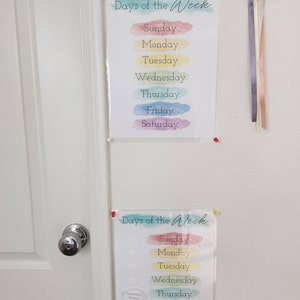 Days of the Week
Sunday
Monday
Tuesday
Wednesday
Thursday
Friday
Saturday
Days of the Week
Sunday
Monday
Tuesday
Wednesday
Thursday